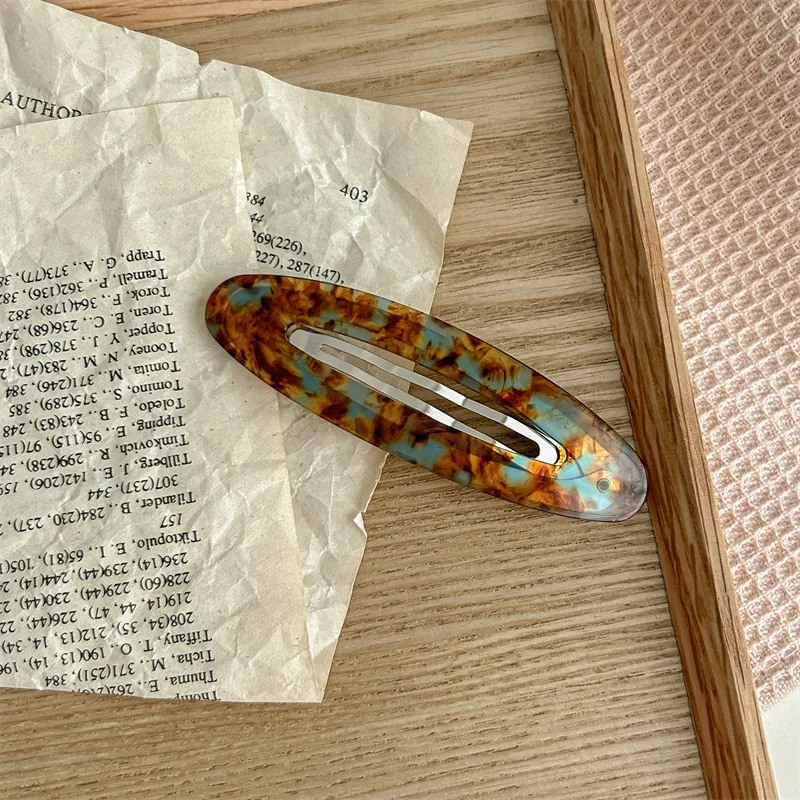 AUTHOR
403
384
44
269(226),
227), 287(147),
Thuma, E., 262
384
Ticha, M., 371(251),
Tiffany, T. O., 190(13, 14), 196
208(34, 35), 212(13, 14, 34
219(14, 44, 47), 226(44),
228(60), 229(44), 230(44),
236(14), 239(44), 244(14),
Tiktopulo, E. I., 65(81), 105(1
157
Tilander, B., 284(230, 237),
307(237), 344
Tillberg, J. E., 142(206), 159
Tinkovich, R., 299(238), 34
Tipping, E., 95(115), 97(115
Toledo, F. B., 243(83), 248
Tomino, S., 375(289), 385
Tomita, M., 371(246), 384
Tooney, N. M., 283(47),
Topper, Y. J., 378(298),
Toren, E. C., 236(68), 247
Torok, F., 364(178), 382
Tramell, P., 362(136), 382
Trapp, G. A., 373(77), 38